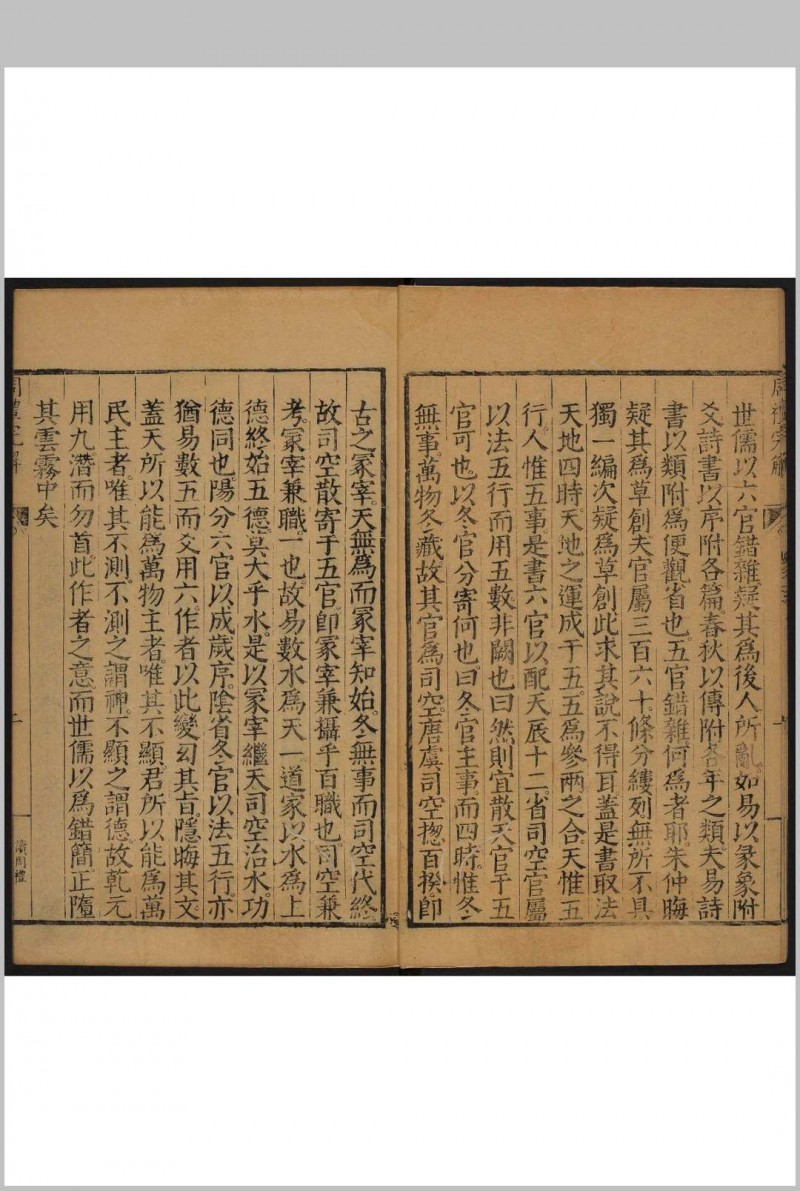 世儒以六官錯雜疑其爲後人所亂如易以彖象附
爻詩書以序附各篇春秋以傳附各年之類夫易詩
書以類附爲便觀省也五官錯雜何爲者耶朱仲晦
疑其爲草創夫官屬三百六十條分縷列無所不具
獨一編次疑爲草創此求其說不得耳蓋是書取法
天地四時天地之運成于五五爲參兩之合天惟五
行人惟五事是書六官以配天辰十二省司空官屬
以法五行而用五數非闕也曰然則宜散天官于五
官可也以冬官分寄何也曰冬官主事而四時惟冬
無事萬物冬藏故其官爲司空唐虞司空揔百揆卽
古之冢宰天無爲而冢宰知始冬無事而司空代終
故司空散寄于五官卽冢宰兼攝乎百職也司空兼
考冢宰兼職一也故易數水爲天一道家以水爲上
德終始五德莫大乎水是以冢宰繼天司空治水功
德同也陽分六官以成歲序陰省冬官以法五行亦
猶易數五而爻用六作者以此變幻其旨隱晦其文
蓋天所以能爲萬物主者唯其不顯君所以能爲萬
民主者唯其不測不測之謂神不顯之謂德故乾元
用九潛而勿首此作者之意而世儒以爲錯簡正墮
其雲霧中矣
讀周禮